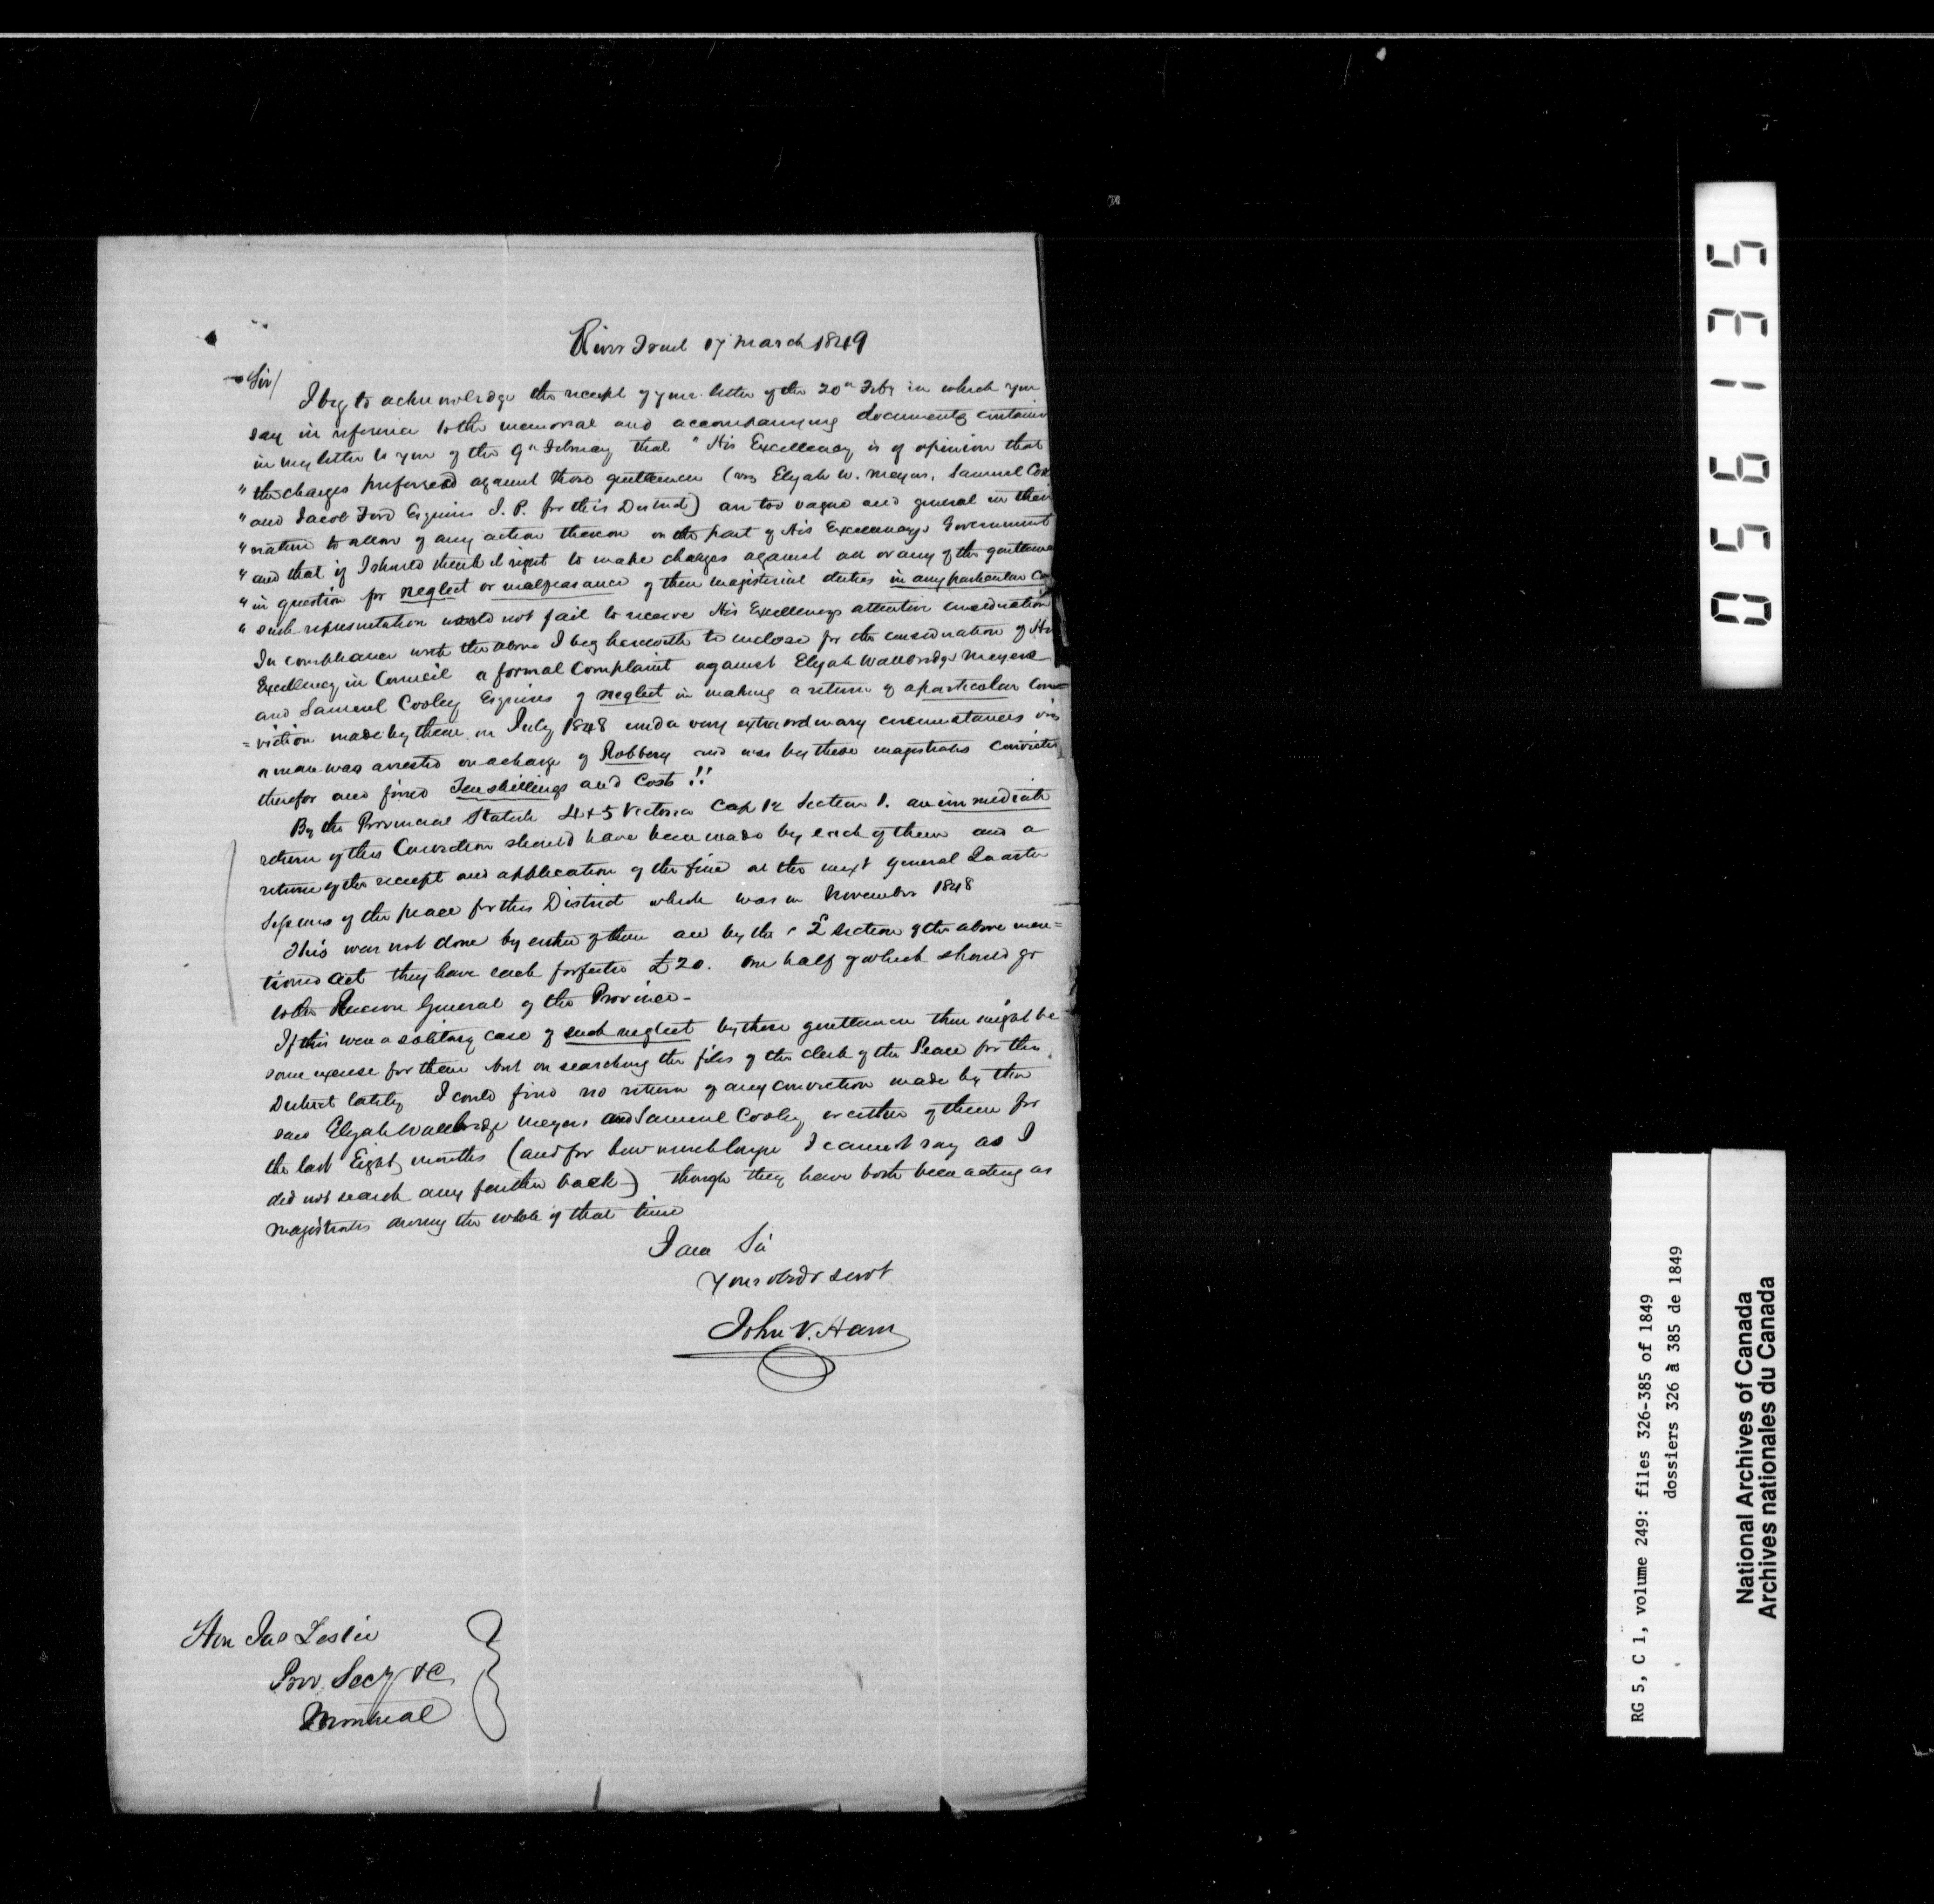 River Trent 17 March 1849
Sir/
I beg to acknowledge the receipt of your letter of the 20th Feby in which you
say in reference to the memorial and accompanying documents contain
in my letter to you of the 9th February that "His Excellency is of opinion that
" the charges preferred against those gentlemen (viz Elijah W. Meyers, Samuel Coo
" and Jacob Ford Esquires J. P. for this District) are too vague and general in their
" nature to allow of any action thereon on the part of His Excellencys Government
" and that if I should think it right to make charges against all or any of the gentleme
" in question for neglect or malfeasance of their magisterial duties in any particular ca
" such representation would not fail to receive His Excellencys attentive consideration
In compliance with the above I beg herewith to inclose for the consideration of His
Excellency in Council a formal Complaint against Elijah Wallbridge Meyers
and Samuel Cooley Esquires of neglect in making a return of a particular Con=
=viction made by them in July 1848 under very extraordinary circumstances viz
a man was arrested on a charge of Robbery and was by these magistrates convicted
therefor and fined Ten shillings and Costs !!
By the Provincial Statute 4 & 5 Victoria Cap 12 Section 1. an immediate
return of this Conviction should have been made by each of them and a
return of the receipt and application of the fine at the next General Quarter
Sessions of the peace for this District which was in November 1848
This was not done by either of them and by the 2 section of the above men=
tioned Act they have each forfeited £20. one half of which should go
to the Receiver General of the Province-
If this were a solitary case of such neglect by these gentlemen there might be
some excuse for them but on searching the files of the clerk of the Peace for this
District lately I could find no return of any conviction made by the
said Elijah Wallbridge Meyers and Samuel Cooley or either of them for
the last Eight months (and for how much longer I cannot say as I
did not search any further back) though they have both been acting as
magistrates during the whole of that time
I am Sir
Your obedt servt
John V. Ham
Hon Jas Leslie
Prov. Secy &c
Montreal
056135
RG 5, C 1, volume 249: files 326-385 of 1849
dossiers 326 à 385 de 1849
National Archives of Canada
Archives nationales du Canada